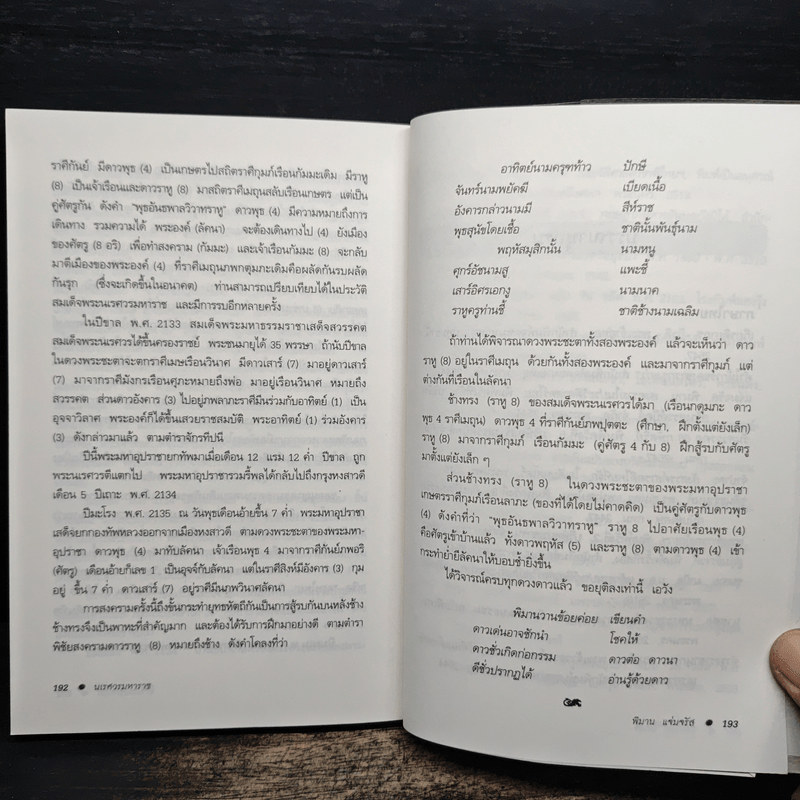 ราศีกันย์ มีดาวพุธ (4) เป็นเกษตรไปสถิตราศีกุมภ์เรือนกัมมะเดิม มีราหู
(8) เป็นเจ้าเรือนและดาวราหู (8) มาสถิตราศีเมถุนสลับเรือนเกษตร แต่เป็น
คู่ศัตรูกัน ดังคำ "พุธอันธพาลวิวาทราหู" ดาวพุธ (4) มีความหมายถึงการ
เดินทาง รวมความได้ พระองค์ (ลัคนา) จะต้องเดินทางไป (4) ยังเมือง
ของศัตรู (8 อริ) เพื่อทำสงคราม (กัมมะ) และเจ้าเรือนกัมมะ (8) จะกลับ
มาตีเมืองของพระองค์ (4) ที่ราศีเมถุนภพกตุมภะเดิมคือผลัดกันรบผลัด
กันรุก (ซึ่งจะเกิดขึ้นในอนาคต) ท่านสามารถเปรียบเทียบได้ในประวัติ
สมเด็จพระนเรศวรมหาราช และมีการรบอีกหลายครั้ง
ในปีขาล พ.ศ. 2133 สมเด็จพระมหาธรรมราชาเสด็จสวรรคต
สมเด็จพระนเรศวรได้ขึ้นครองราชย์ พระชนมายุได้ 35 พรรษา ถ้านับปีขาล
ในดวงพระชะตาจะตกราศีเมษเรือนวินาศ มีดาวเสาร์ (7) มาอยู่ดาวเสาร์
(7) มาจากราศีมังกรเรือนศุภะหมายถึงพ่อ มาอยู่เรือนวินาศ หมายถึง
สวรรคต ส่วนดาวอังคาร (3) ไปอยู่ภพลาภะราศีมีนร่วมกับอาทิตย์ (1) เป็น
อุจจาวิลาศ พระองค์ก็ได้ขึ้นเสวยราชสมบัติ พระอาทิตย์ (1) ร่วมอังคาร
(3) ดังกล่าวมาแล้ว ตามตำราจักรทีปนี
ปีนี้พระมหาอุปราชายกทัพมาเมื่อเดือน 12 แรม 12 ค่ำ ปีขาล ถูก
พระนเรศวรตีแตกไป พระมหาอุปราชารวมรี้พลได้กลับไปถึงกรุงหงสาวดี
เดือน 5 ปีเถาะ พ.ศ. 2134
ปีมะโรง พ.ศ. 2135 ณ วันพุธเดือนอ้ายขึ้น 7 ค่ำ พระมหาอุปราชา
เสด็จยกกองทัพหลวงออกจากเมืองหงสาวดี ตามดวงพระชะตาของพระมหา-
อุปราชา ดาวพุธ (4) มาทับลัคนา เจ้าเรือนพุธ 4 มาจากราศีกันย์ภพอริ
(ศัตรู) เดือนอ้ายก็เลข 1 เป็นอุจจ์กับลัคนา แต่ในราศีสิงห์มีอังคาร (3) กุม
อยู่ ขึ้น 7 ค่ำ ดาวเสาร์ (7) อยู่ราศีมีนภพวินาศลัคนา
การสงครามครั้งนี้ถึงขั้นกระทำยุทธหัตถีกันเป็นการสู้รบกันบนหลังช้าง
ช้างทรงจึงเป็นพาหะที่สำคัญมาก และต้องได้รับการฝึกมาอย่างดี ตามตำรา
พิชัยสงครามดาวราหู (8) หมายถึงช้าง ดังคำโคลงที่ว่า
192 ● นเรศวรมหาราช
อาทิตย์นามครุฑท้าว ปักษี
จันทร์นามพยัคฆี เบียดเนื้อ
อังคารกล่าวนามมี สีห์ราช
พุธสุนัขโดยเชื้อ ชาตินั้นพันธุ์นาม
พฤหัสมุสิกนั้น นามหนู
ศุกร์อัชนามสู แพะชี้
เสาร์อิศรเอกงู นามนาค
ราหูครูท่านชี้ ชาติช้างนามเฉลิม
ถ้าท่านได้พิจารณาดวงพระชะตาทั้งสองพระองค์ แล้วจะเห็นว่า ดาว
ราหู (8) อยู่ในราศีเมถุน ด้วยกันทั้งสองพระองค์ และมาจากราศีกุมภ์ แต่
ต่างกันที่เรือนในลัคนา
ช้างทรง (ราหู 8) ของสมเด็จพระนเรศวรได้มา (เรือนกดุมภะ ดาว
พุธ 4 ราศีเมถุน) ดาวพุธ 4 ที่ราศีกันย์ภพปุตตะ (ศึกษา, ฝึกตั้งแต่ยังเล็ก)
ราหู (8) มาจากราศีกุมภ์ เรือนกัมมะ (คู่ศัตรู 4 กับ 8) ฝึกสู้รบกับศัตรู
มาตั้งแต่ยังเล็ก ๆ
ส่วนช้างทรง (ราหู 8) ในดวงพระชะตาของพระมหาอุปราชา
เกษตรราศีกุมภ์เรือนลาภะ (ของที่ได้โดยไม่คาดคิด) เป็นคู่ศัตรูกับดาวพุธ
(4) ดังคำที่ว่า "พุธอันธพาลวิวาทราหู" ราหู 8 ไปอาศัยเรือนพุธ (4)
คือศัตรูเข้าบ้านแล้ว ทั้งดาวพฤหัส (5) และราหู (8) ตามดาวพุธ (4) เข้า
กระทำย่ำยีลัคนาให้บอบช้ำยิ่งขึ้น
ได้วิจารณ์ครบทุกดวงดาวแล้ว ขอยุติลงเท่านี้ เอวัง
พิมานวานข้อยค่อย เขียนคำ
ดาวเด่นอาจชักนำ โชคให้
ดาวชั่วเกิดก่อกรรม ดาวต่อ ดาวนา
ดีชั่วปรากฏได้ อ่านรู้ด้วยดาว
พิมาน แช่มจรัส ● 193